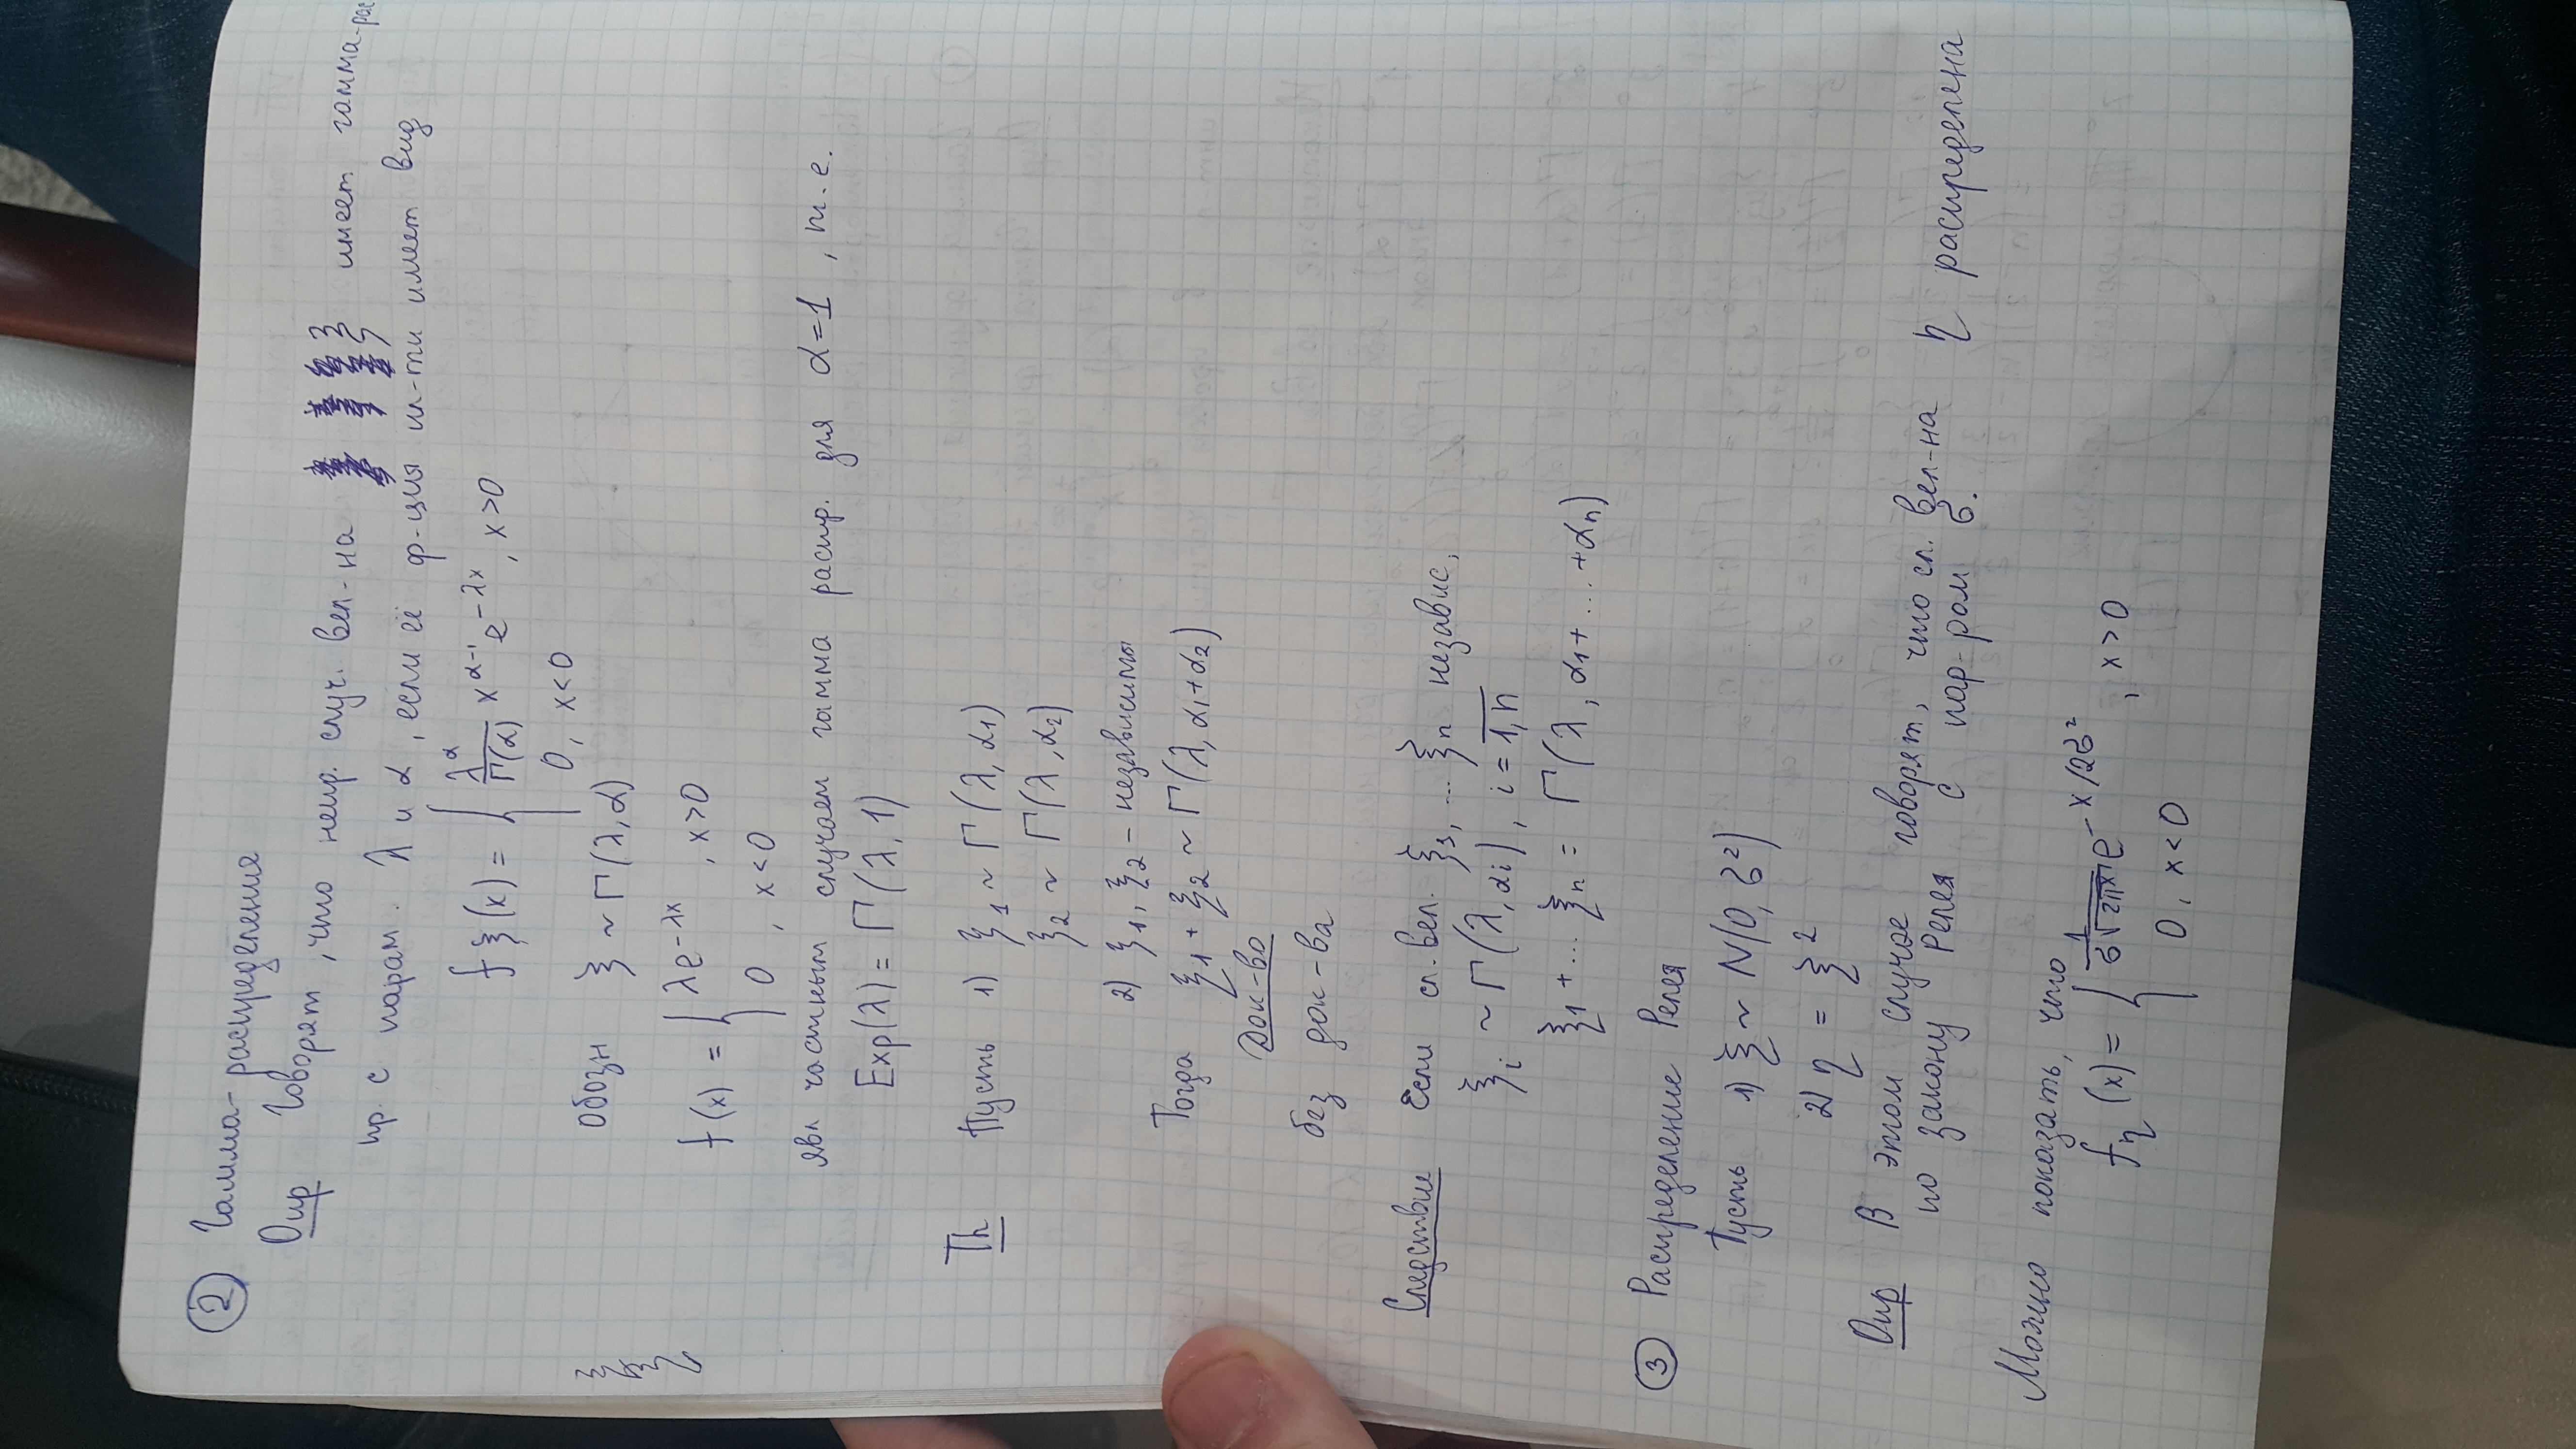 ② Гамма-распределения
Опр Говорят, что непр. случ. вел-на ξ имеет гамма-рас
пр. с парам. λ и α, если её ф-ция пл-ти имеет вид
fξ(x) = { λ^α/Γ(α) x^(α-1) e^(-λx), x>0
0, x<0
обозн ξ ~ Γ(λ, α)
f(x) = { λe^(-λx), x>0
0, x<0
явл частным случаем гамма распр. для α=1, т.е.
Exp(λ) = Γ(λ, 1)
Th Пусть 1) ξ₁ ~ Γ(λ, α₁)
ξ₂ ~ Γ(λ, α₂)
2) ξ₁, ξ₂ – независимы
Тогда ξ₁ + ξ₂ ~ Γ(λ, α₁+α₂)
Док-во
без док-ва
Следствие Если сл. вел. ξ₁, ... ξn независ,
ξi ~ Γ(λ, αi), i = 1,n
ξ₁ + ... ξn = Γ(λ, α₁+ ... +αn)
③ Распределение Релея
Пусть 1) ξ ~ N(0, σ²)
2) η = ξ²
Опр В этом случае говорят, что сл. вел-на η распределена
по закону Релея с пар-ром σ.
Можно показать, что
fη(x) = { 1/(σ√(2πx)) e^(-x/2σ²), x>0
0, x<0